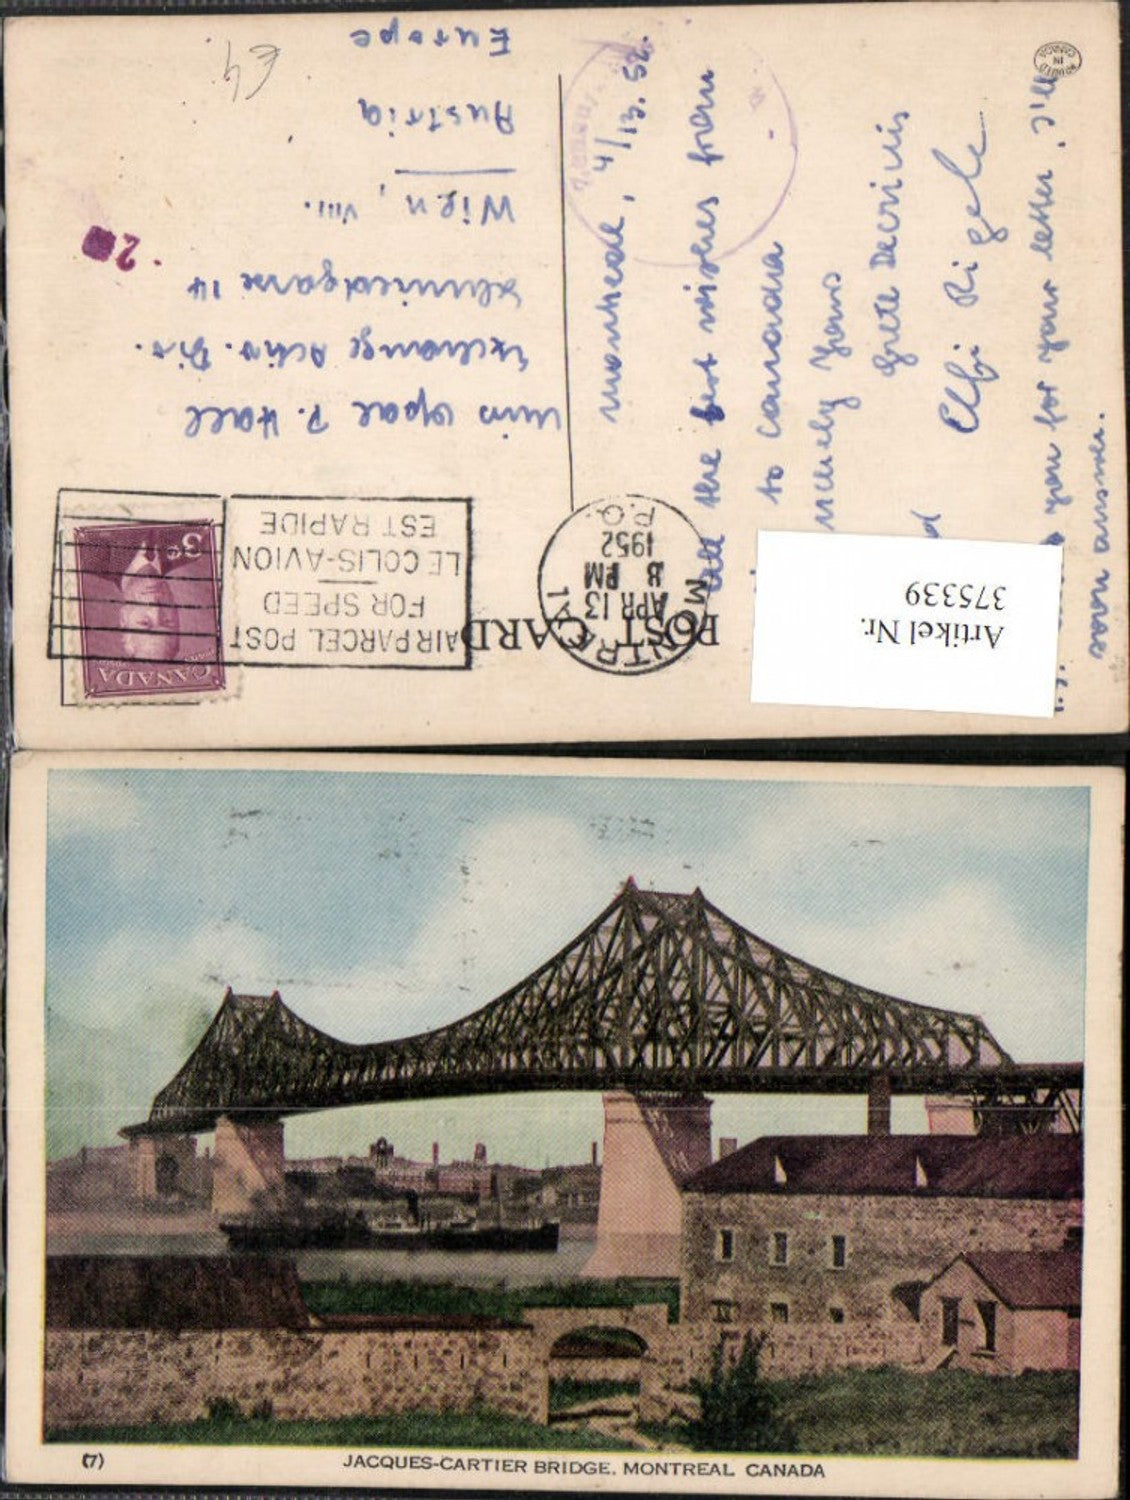 PRINTED
IN
CANADA
POST CARD
MONTREAL
APR 13
8 PM
1952
P.Q.
AIR PARCEL POST
FOR SPEED
LE COLIS-AVION
EST RAPIDE
CANADA
3¢
Miss Opal P. Hall
Exchange Activ. Div.
Schmiedgasse 14
Wien, VIII.
Austria
Europe
.2
£4
Montreal, 4/13. 52.
All the best wishes from
to Canada
Yours
Grete
Elfi
you for your letter. I'll
soon answer.
Artikel Nr.
375339
(7)
JACQUES-CARTIER BRIDGE. MONTREAL CANADA